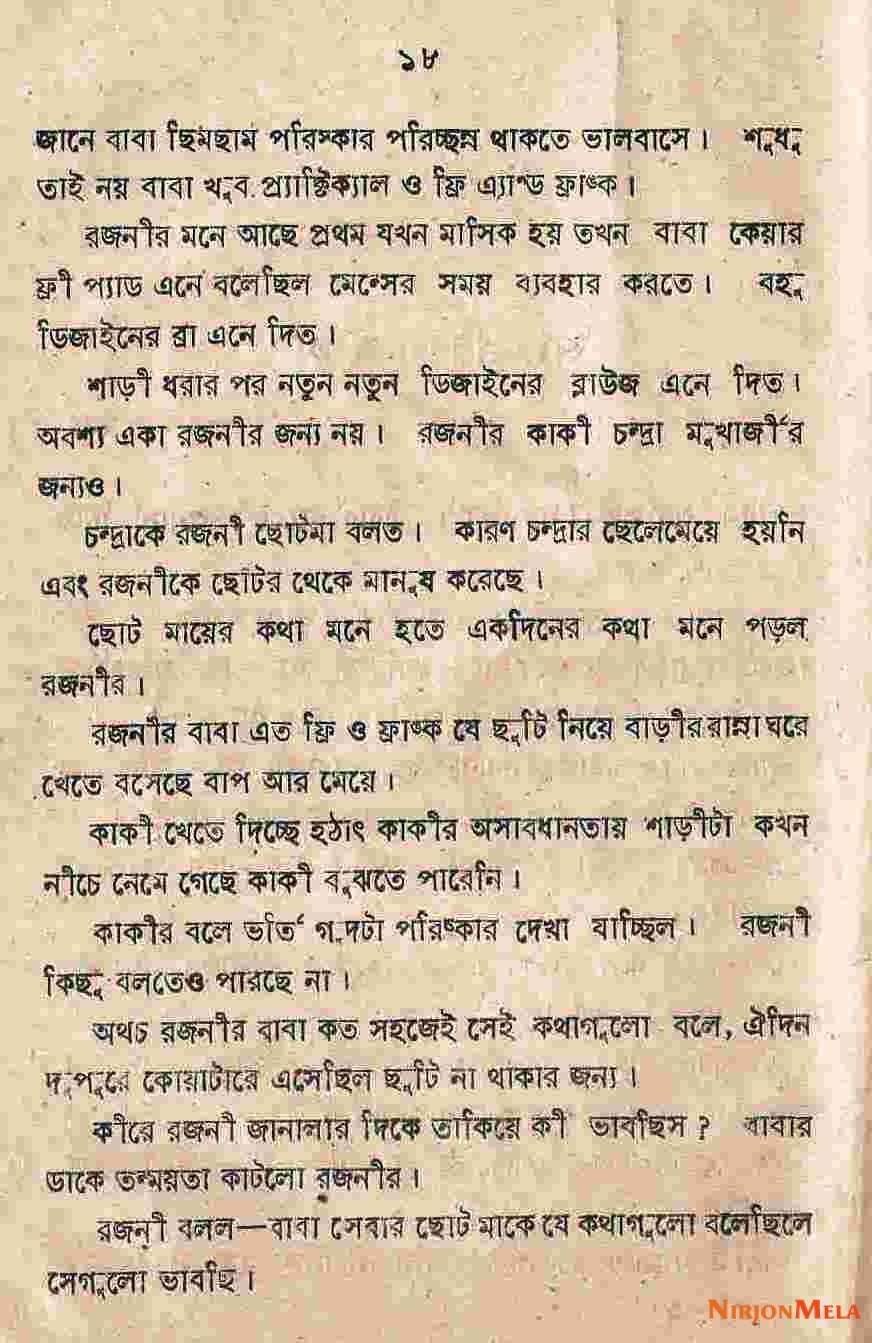 ১৮
জানে বাবা ছিমছাম পরিস্কার পরিচ্ছন্ন থাকতে ভালবাসে। শুধু
তাই নয় বাবা খুব প্র্যাক্টিক্যাল ও ফ্রি এ্যান্ড ফ্রাঙ্ক।
রজনীর মনে আছে প্রথম যখন মাসিক হয় তখন বাবা কেয়ার
ফ্রী প্যাড এনে বলেছিল মেন্সের সময় ব্যবহার করতে। বহু
ডিজাইনের ব্রা এনে দিত।
শাড়ী ধরার পর নতুন নতুন ডিজাইনের ব্লাউজ এনে দিত।
অবশ্য একা রজনীর জন্য নয়। রজনীর কাকী চন্দ্রা মুখার্জীর
জন্যও।
চন্দ্রাকে রজনী ছোটমা বলত। কারণ চন্দ্রার ছেলেমেয়ে হয়নি
এবং রজনীকে ছোটর থেকে মানুষ করেছে।
ছোট মায়ের কথা মনে হতে একদিনের কথা মনে পড়ল
রজনীর।
রজনীর বাবা এত ফ্রি ও ফ্রাঙ্ক যে ছুটি নিয়ে বাড়ীর রান্না ঘরে
খেতে বসেছে বাপ আর মেয়ে।
কাকী খেতে দিচ্ছে হঠাৎ কাকীর অসাবধানতায় শাড়ীটা কখন
নীচে নেমে গেছে কাকী বুঝতে পারেনি।
কাকীর বলে ভর্তি গুদটা পরিষ্কার দেখা যাচ্ছিল। রজনী
কিছু বলতেও পারছে না।
অথচ রজনীর বাবা কত সহজেই সেই কথাগুলো বলে, ঐদিন
দুপুরে কোয়াটারে এসেছিল ছুটি না থাকার জন্য।
কীরে রজনী জানালার দিকে তাকিয়ে কী ভাবছিস? বাবার
ডাকে তন্ময়তা কাটলো রজনীর।
রজনী বলল—বাবা সেবার ছোট মাকে যে কথাগুলো বলেছিলে
সেগুলো ভাবছি।
NIRJONMELA